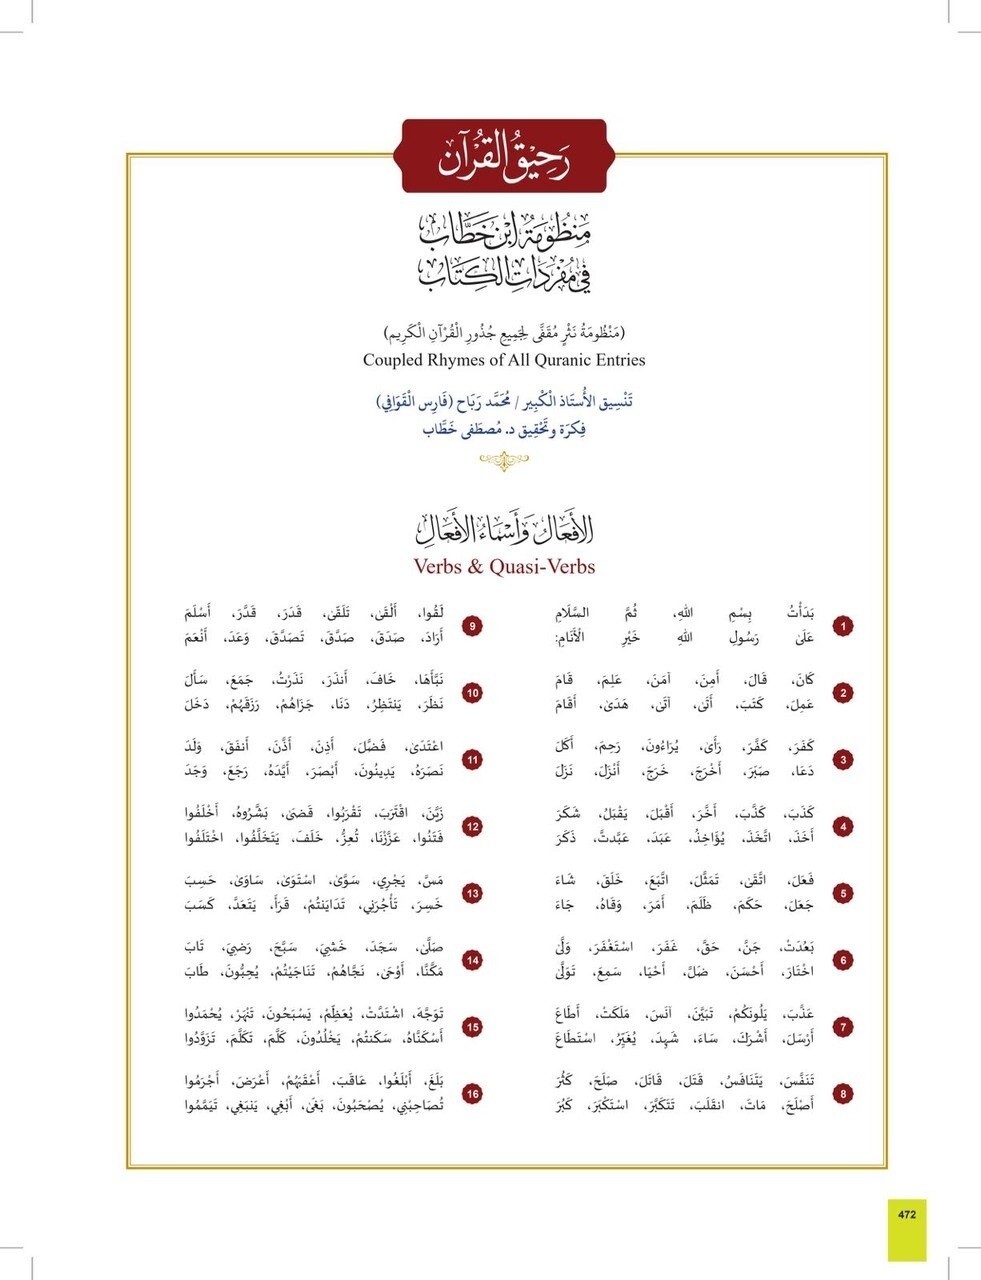 رَحِيقُ الْقُرْآن
مَنظُومَةُ ابْن خَطَّاب
فِي مُفْرَدَاتِ الْكِتَاب
(مَنْظُومَةُ نَثْرٍ مُقَفَّى لِجَمِيعِ جُذُورِ الْقُرْآنِ الْكَرِيم)
Coupled Rhymes of All Quranic Entries
تَنْسِيق الأُسْتَاذ الْكَبِير / مُحَمَّد رَبَاح (فَارِس الْقَوَافِي)
فِكرَة وتَحْقِيق د. مُصطَفى خَطَّاب
الأَفْعَالُ وَأَسْمَاءُ الأَفْعَالِ
Verbs & Quasi-Verbs
1
بَدَأْتُ بِسْمِ اللهِ، ثُمَّ السَّلَامِ
عَلَىٰ رَسُولِ اللهِ خَيْرِ الْأَنَامِ:
2
كَانَ، قَالَ، أَمِنَ، آمَنَ، عَلِمَ، قَامَ
عَمِلَ، كَتَبَ، أَتَىٰ، آتَىٰ، هَدَىٰ، أَقَامَ
3
كَفَرَ، كَفَّرَ، رَأَىٰ، يُرَاءُونَ، رَحِمَ، أَكَلَ
دَعَا، صَبَرَ، أَخْرَجَ، خَرَجَ، أَنْزَلَ، نَزَلَ
4
كَذَبَ، كَذَّبَ، أَخَّرَ، أَقْبَلَ، يَقْبَلُ، شَكَرَ
أَخَذَ، اتَّخَذَ، يُؤَاخِذُ، عَبَدَ، عَبَّدتَّ، ذَكَرَ
5
فَعَلَ، اتَّقَىٰ، تَمَثَّلَ، اتَّبَعَ، خَلَقَ، شَاءَ
جَعَلَ، حَكَمَ، ظَلَمَ، أَمَرَ، وَقَاهُ، جَاءَ
6
بَعُدَتْ، جَنَّ، حَقَّ، غَفَرَ، اسْتَغْفَرَ، وَلَّىٰ
اخْتَارَ، أَحْسَنَ، ضَلَّ، أَحْيَا، سَمِعَ، تَوَلَّىٰ
7
عَذَّبَ، يَلُونَكُمْ، تَبَيَّنَ، آنَسَ، مَلَكَتْ، أَطَاعَ
أَرْسَلَ، أَشْرَكَ، سَاءَ، شَهِدَ، يُغَيِّرُ، اسْتَطَاعَ
8
تَنَفَّسَ، يَتَنَافَسُ، قَتَلَ، قَاتَلَ، صَلَحَ، كَثُرَ
أَصْلَحَ، مَاتَ، انقَلَبَ، تَتَكَبَّرَ، اسْتَكْبَرَ، كَبُرَ
9
لَقُوا، أَلْقَىٰ، تَلَقَّىٰ، قَدَرَ، قَدَّرَ، أَسْلَمَ
أَرَادَ، صَدَقَ، صَدَّقَ، تَصَدَّقَ، وَعَدَ، أَنْعَمَ
10
نَبَّأَهَا، خَافَ، أَنذَرَ، نَذَرْتُ، جَمَعَ، سَأَلَ
نَظَرَ، يَنتَظِرُ، دَنَا، جَزَاهُمْ، رَزَقَهُمْ، دَخَلَ
11
اعْتَدَىٰ، فَضَّلَ، أَذِنَ، أَذَّنَ، أَنفَقَ، وَلَدَ
نَصَرَهُ، يَدِينُونَ، أَبْصَرَ، أَيَّدَهُ، رَجَعَ، وَجَدَ
12
زَيَّنَ، اقْتَرَبَ، تَقْرَبُوا، قَضَىٰ، بَشَّرُوهُ، أَخْلَفُوا
فَتَنُوا، عَزَّزْنَا، تُعِزُّ، خَلَفَ، يَتَخَلَّفُوا، اخْتَلَفُوا
13
مَسَّ، يَجْرِي، سَوَّىٰ، اسْتَوَىٰ، سَاوَىٰ، حَسِبَ
خَسِرَ، تَأْجُرَنِي، تَدَايَنتُمْ، قَرَأَ، يَتَعَدَّ، كَسَبَ
14
صَلَّىٰ، سَجَدَ، خَشِيَ، سَبَّحَ، رَضِيَ، تَابَ
مَكَّنَّا، أَوْحَىٰ، نَجَّاهُمْ، تَنَاجَيْتُمْ، يُحِبُّونَ، طَابَ
15
تَوَجَّهَ، اشْتَدَّتْ، يُعَظِّمْ، يَسْبَحُونَ، تَنْهَرْ، يُحْمَدُوا
أَسْكَنَّاهُ، سَكَنتُمْ، يَخْلُدُونَ، كَلَّمَ، تَكَلَّمَ، تَزَوَّدُوا
16
بَلَغَ، أَبْلَغُوا، عَاقَبَ، أَعْقَبَهُمْ، أَعْرَضَ، أَجْرَمُوا
تُصَاحِبْنِي، يُصْحَبُونَ، بَغَىٰ، أَبْغِي، يَنبَغِي، تَيَمَّمُوا
472